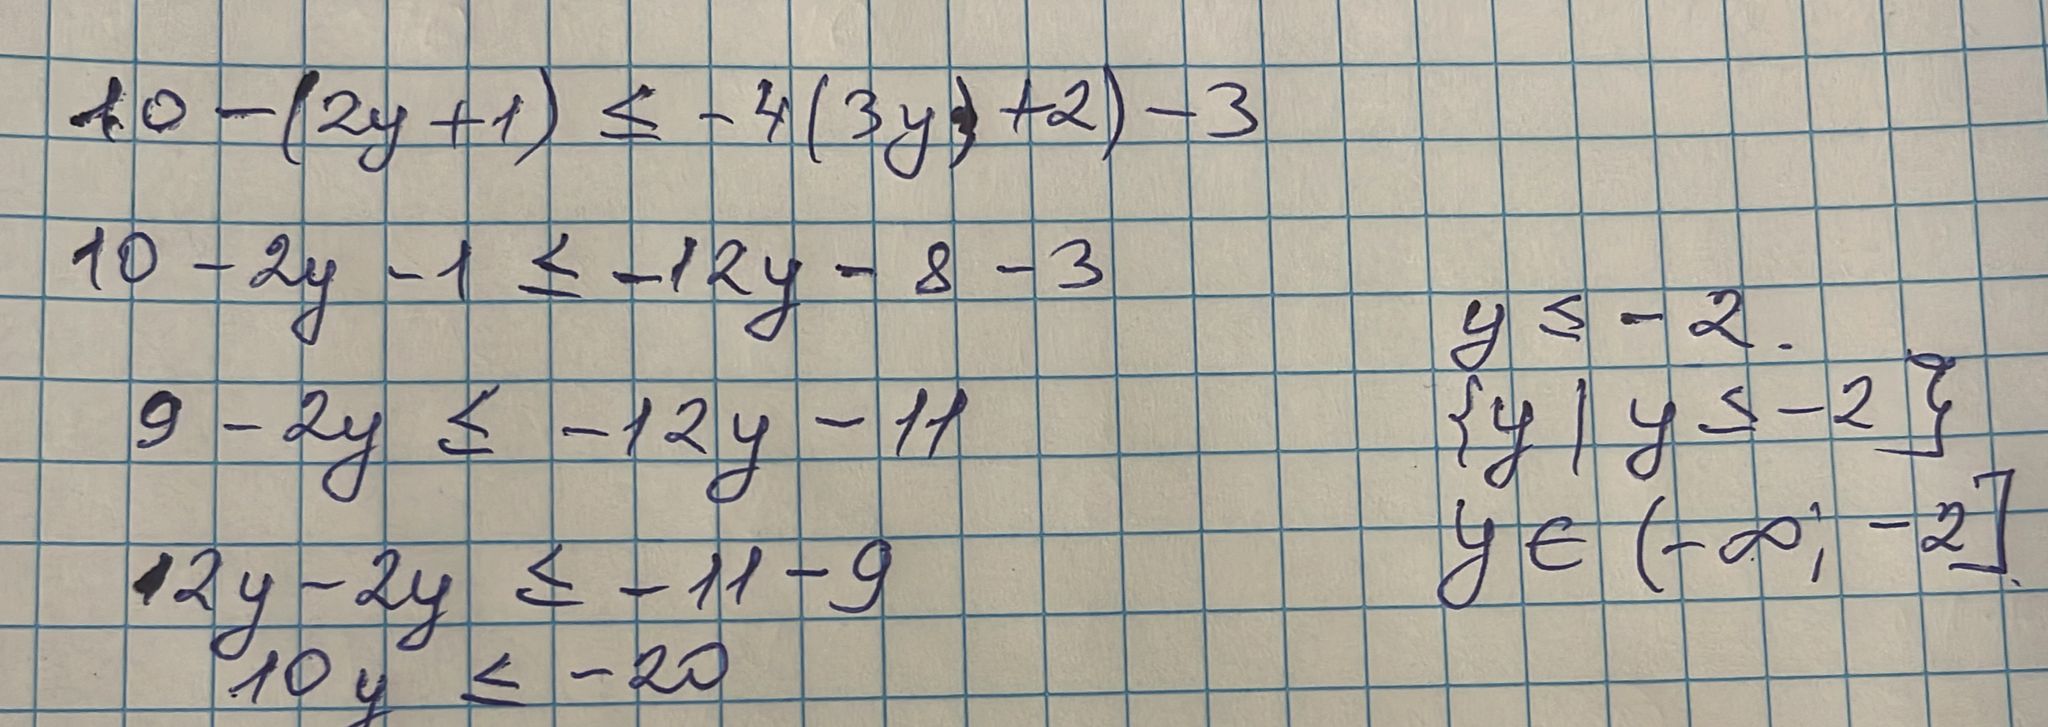 10 - (2y + 1) ≤ - 4 (3y + 2) - 3
10 - 2y - 1 ≤ - 12y - 8 - 3
9 - 2y ≤ - 12y - 11
12y - 2y ≤ - 11 - 9
10y ≤ - 20
y ≤ - 2.
{y | y ≤ - 2}
y ∈ (- ∞; - 2].